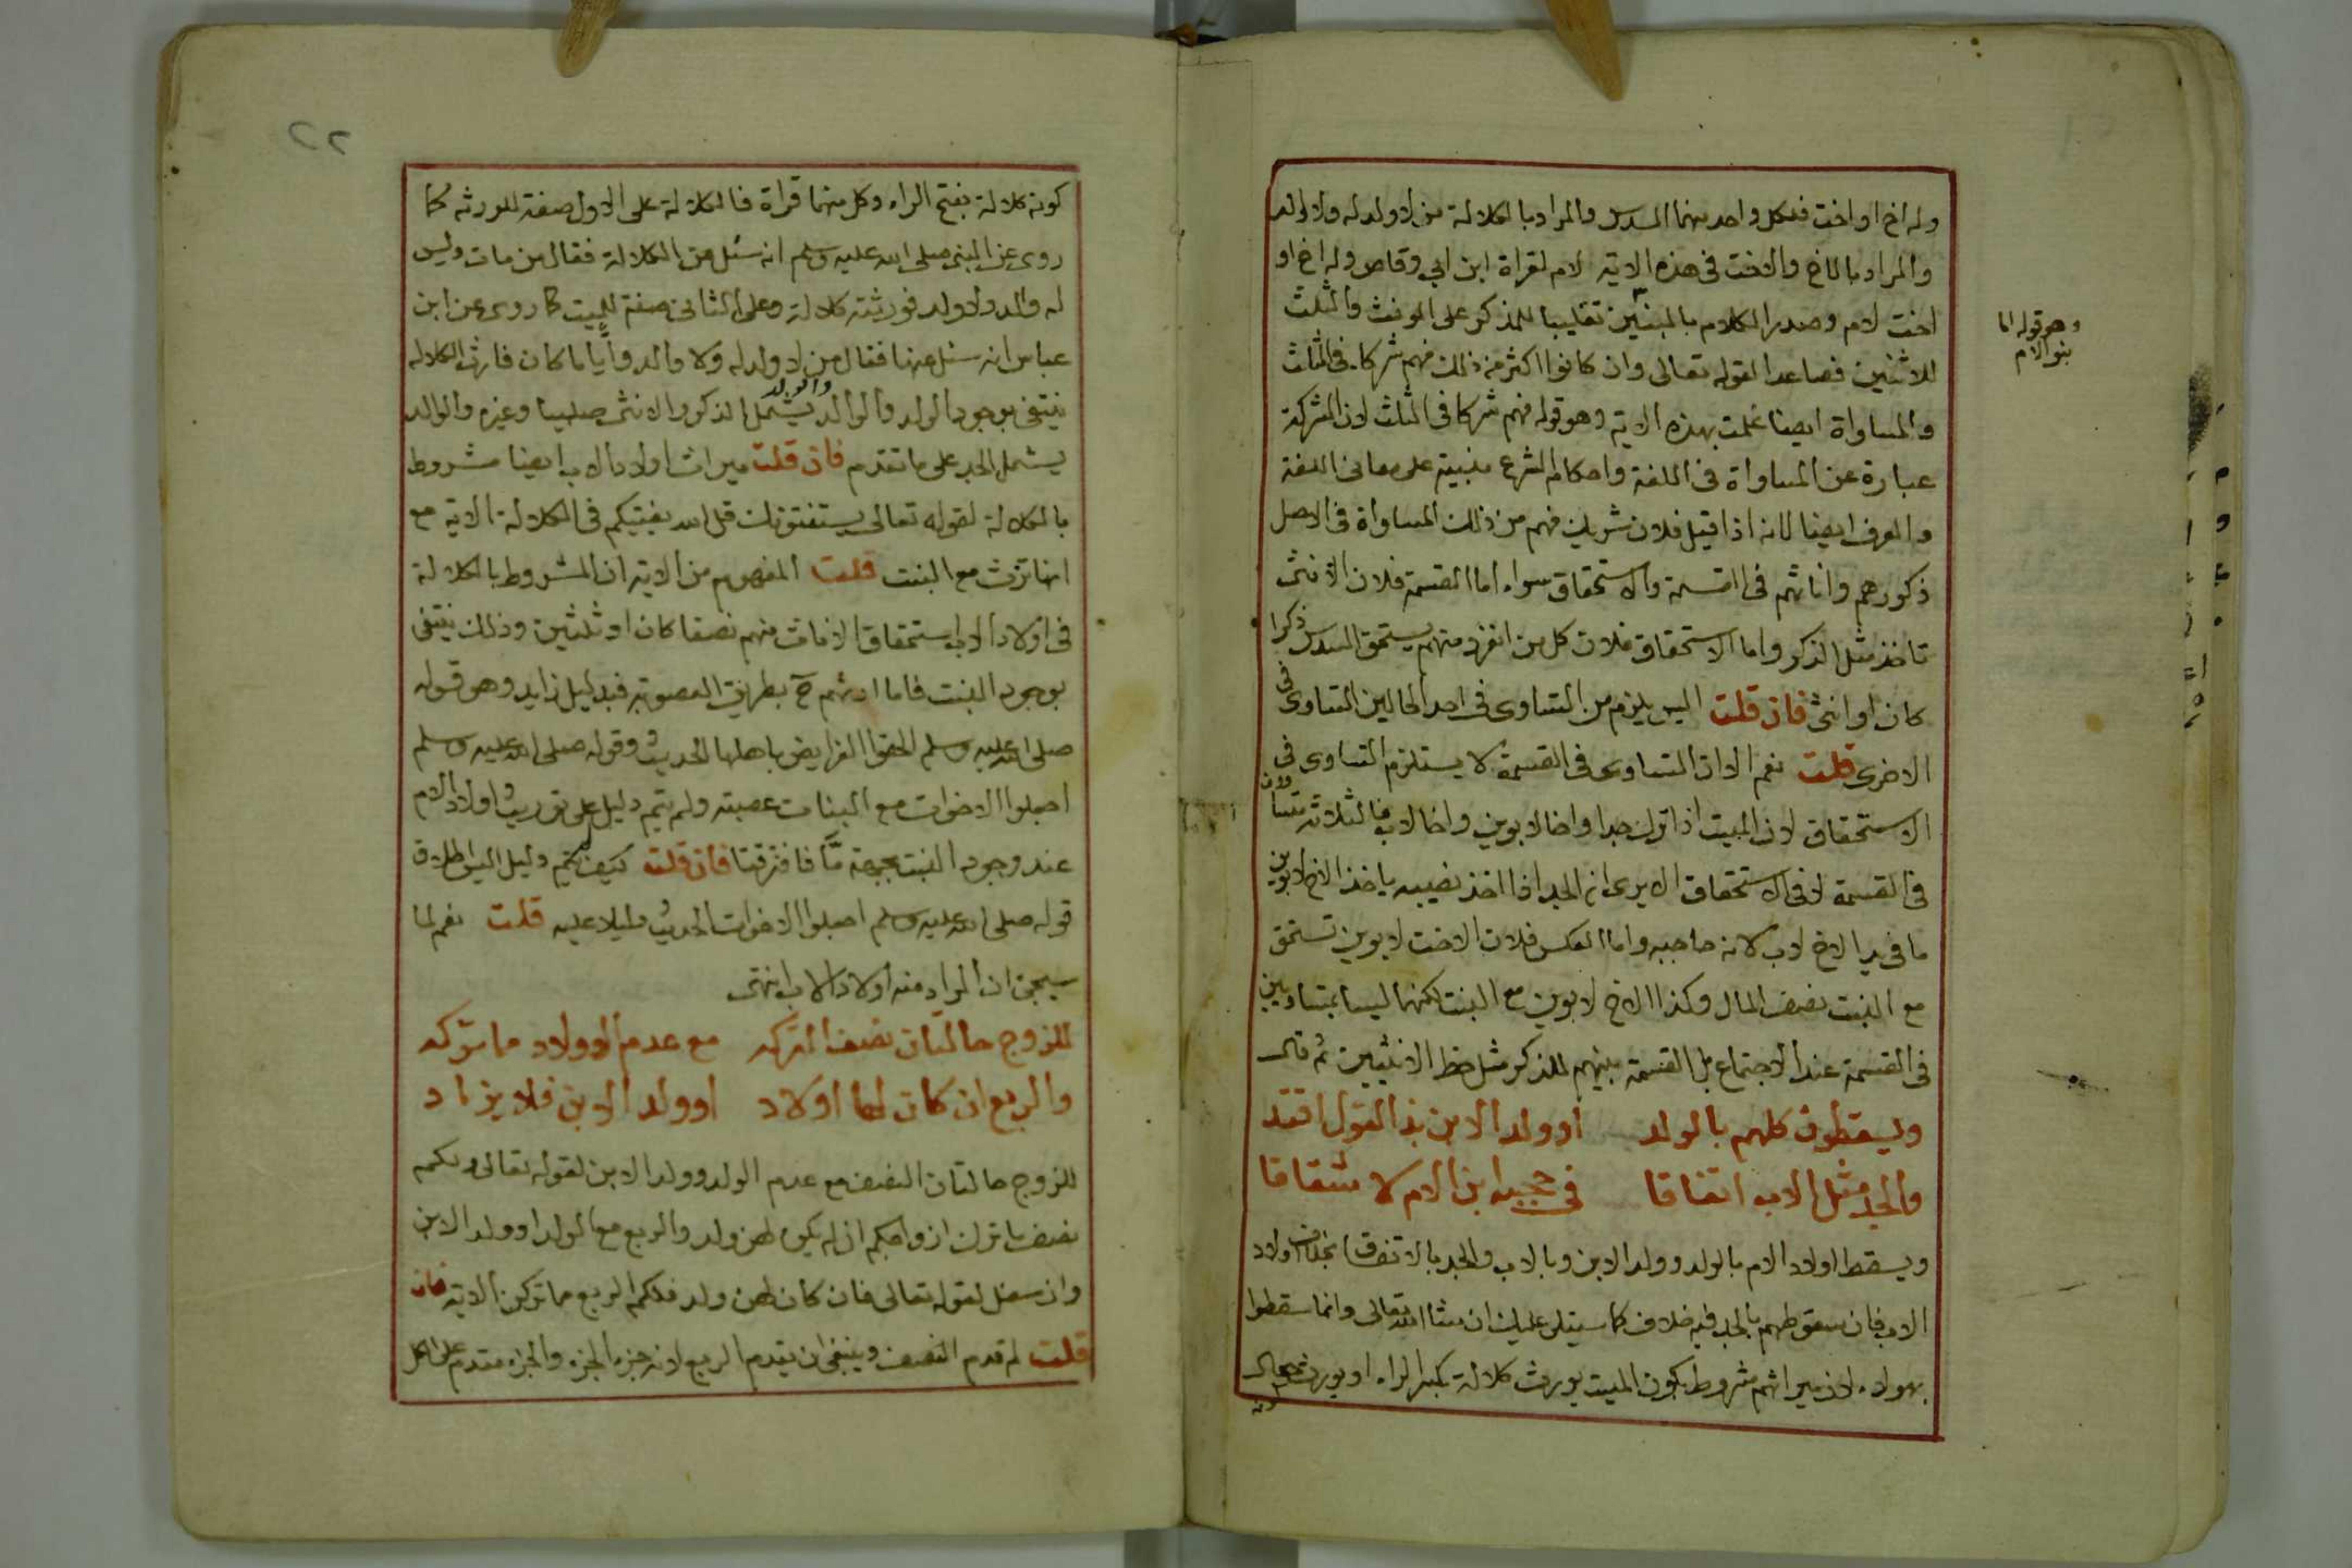 وله اخ او اخت فلكل واحد منهما السدس والمراد بالكلالة من لا ولد له ولا والد
والمراد بالاخ والاخت فى هذه الاية لام لقراة ابن ابي وقاص وله اخ او
اخت لام وصدر الكلام بالمبنيين تغليبا للمذكر على المونث والثلث
وهو قوله اما
بنو الام
للاثنين فصاعدا لقوله تعالى وان كانوا اكثر من ذلك فهم شركا فى الثلث
والمساواة ايضا علمت بهذه الاية وهو قوله فهم شركا فى الثلث لان الشركة
عبارة عن المساواة فى اللغة واحكام الشرع مبنية على معانى اللغة
والعرف ايضا لانه اذا قيل فلان شريك فهم من ذلك المساواة فى الاصل
ذكورهم واناثهم فى القسمة والاستحقاق سواء اما القسمة فلان الانثى
تاخذ مثل الذكر واما الاستحقاق فلان كل من انفرد منهم يستحق السدس ذكرا
كان او انثى فان قلت اليس يلزم من التساوى فى احد الحالين التساوى فى
الاخرى قلت نعم الا ان التساوى فى القسمة لا يستلزم التساوى فى
الاستحقاق لان الميت اذا ترك جدا واخا لابوين واخا لاب فالثلاثة متساوون
فى القسمة لا فى الاستحقاق الا يرى ان الجد اذا اخذ نصيبه ياخذ الاخ لابوين
ما فى يد الاخ لاب لانه حاجبه واما العكس فلان الاخت لابوين تستحق
مع البنت نصف المال وكذا الاخ لابوين مع البنت لكنهما ليسا بمتساويين
فى القسمة عند الاجتماع بل القسمة بينهم للذكر مثل حظ الانثيين ثم قال
ويسقطون كلهم بالولد او ولد الابن بذا القول اقتد
والجد مثل الاب اتفاقا فى حجبه ابن الام لا شقاقا
ويسقط اولاد الام بالولد وولد الابن وبالاب والجد بالاتفاق بخلاف اولاد
الاب فان سقوطهم بالجد فيه خلاف كما سيتلى عليك ان شاالله تعالى وانما سقطوا
بهولاء لان ميراثهم مشروط بكون الميت يورث كلالة بكسر الراء او يورث
٢٢
كونه كلالة بفتح الراء وكل منهما قراة فالكلالة على الاول صفة للورثه كما
روى عن النبى صلى الله عليه وسلم انه سئل عن الكلالة فقال من مات وليس
له والد ولا ولد فورثته كلالة وعلى الثانى صفة للميت كما روى عن ابن
عباس انه سئل عنها فقال من لا ولد له ولا والد واياما كان فارث الكلاله
ينتفى بوجود الولد والوالد والولد يشمل الذكر والانثى صلبيا وغيره والوالد
يشمل الجد على ما تقدم فان قلت ميراث اولاد الاب ايضا مشروط
بالكلالة لقوله تعالى يستفتونك قل الله يفتيكم فى الكلالة الاية مع
انها ترث مع البنت قلت المفهوم من الاية ان المشروط بالكلالة
فى اولاد الاب استحقاق الاناث منهم نصفا كان او ثلثين وذلك ينتفى
بوجود البنت فاما ارثهم ح بطريق العصوبة فبدليل زايد وهو قوله
صلى الله عليه وسلم الحقوا الفرايض باهلها الحديث وقوله صلى الله عليه وسلم
اجعلوا الاخوات مع البنات عصبته ولم يتم دليل على توريث اولاد الام
عند وجود البنت بجهة ما فافترقتا فان قلت كيف لم يتم دليل اليس اطلاق
قوله صلى الله عليه وسلم اجعلوا الاخوات الحديث دليلا عليه قلت نعم لما
سيجئ ان المراد منه اولاد الاب انتهى
للزوج حالتان نصف التركه مع عدم الاولاد مما تركه
والربع ان كان لها اولاد او ولد الابن فلا يزاد
للزوج حالتان النصف مع عدم الولد وولد الابن لقوله تعالى ولكم
نصف ما ترك ازواجكم ان لم يكن لهن ولد والربع مع الولد او ولد الابن
وان سفل لقوله تعالى فان كان لهن ولد فلكم الربع مما تركن الاية فان
قلت لم قدم النصف وينبغى ان يقدم الربع لانه جزء الجزء والجزء مقدم على الكل